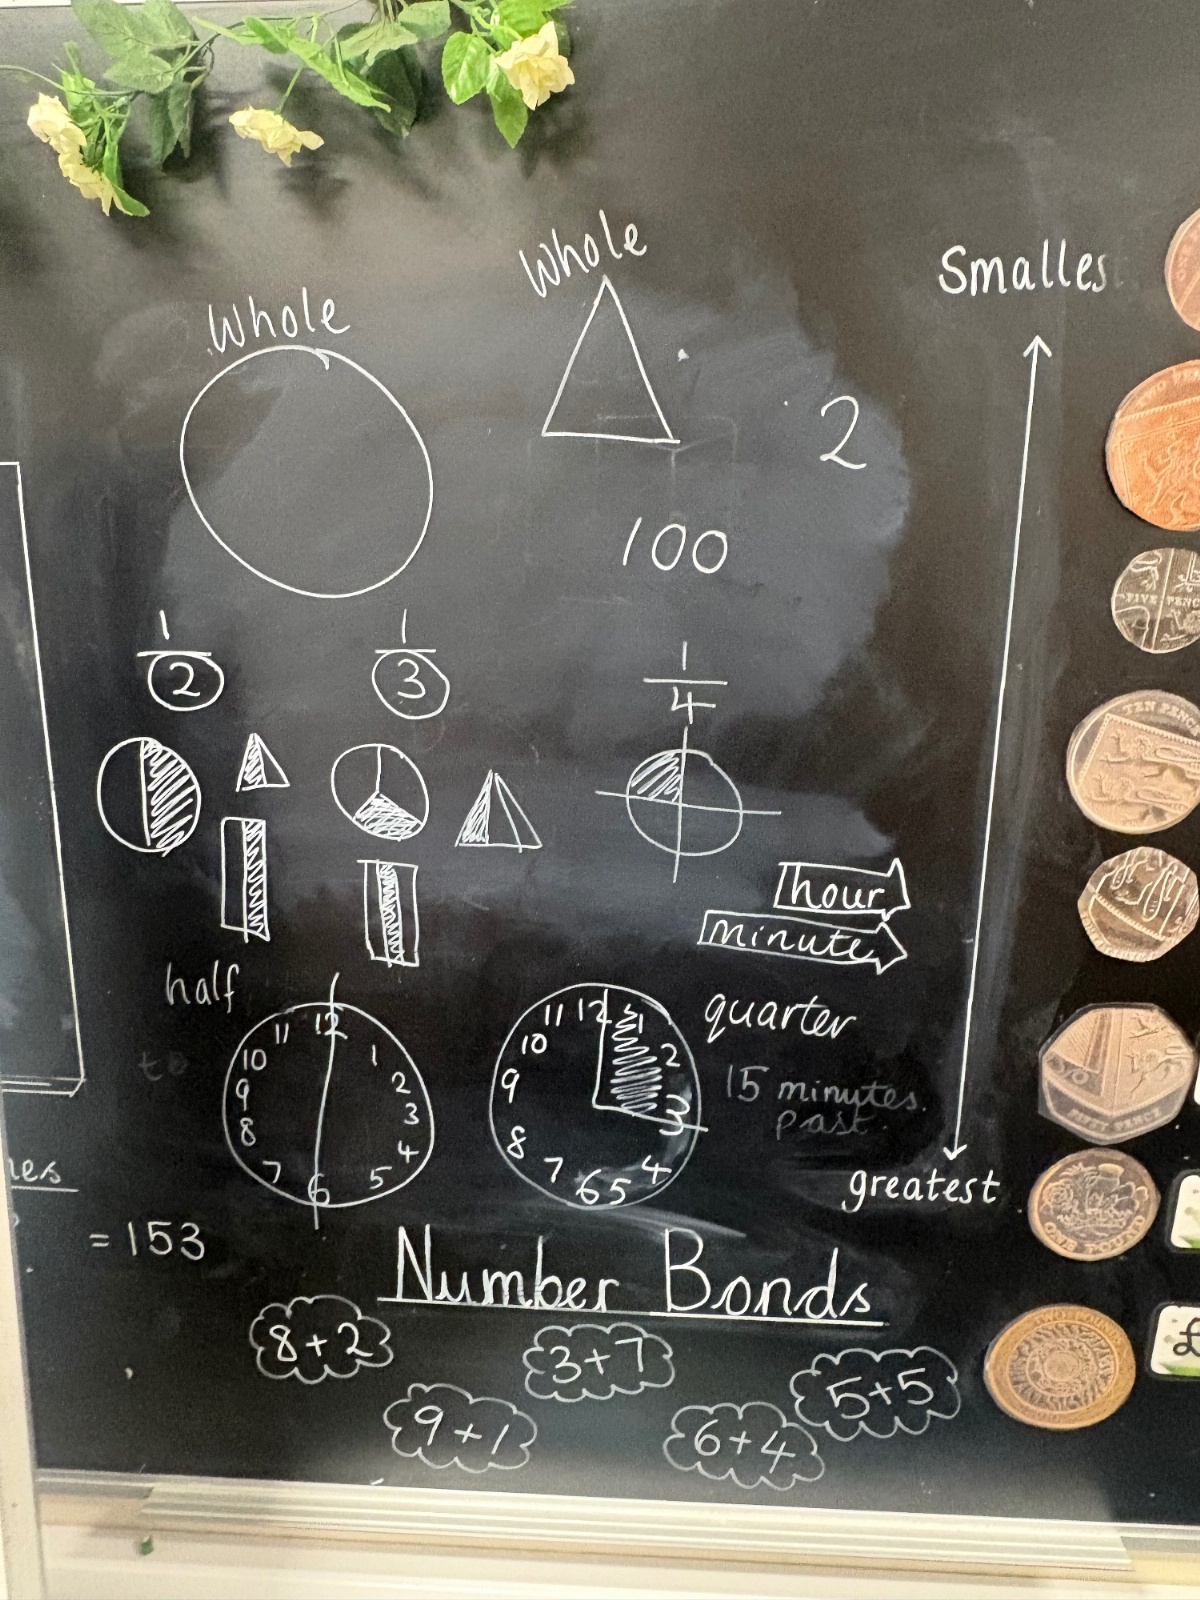 Whole
Whole
Smalles
2
100
1
2
1
3
1
4
hour
minute
half
quarter
to
15 minutes
past
12
1
2
3
4
5
6
7
8
9
10
11
12
1
2
3
4
5
6
7
8
9
10
11
greatest
= 153
Number Bonds
8+2
3+7
5+5
9+1
6+4
FIVE PENC
TEN PENC
ONE POUND
£